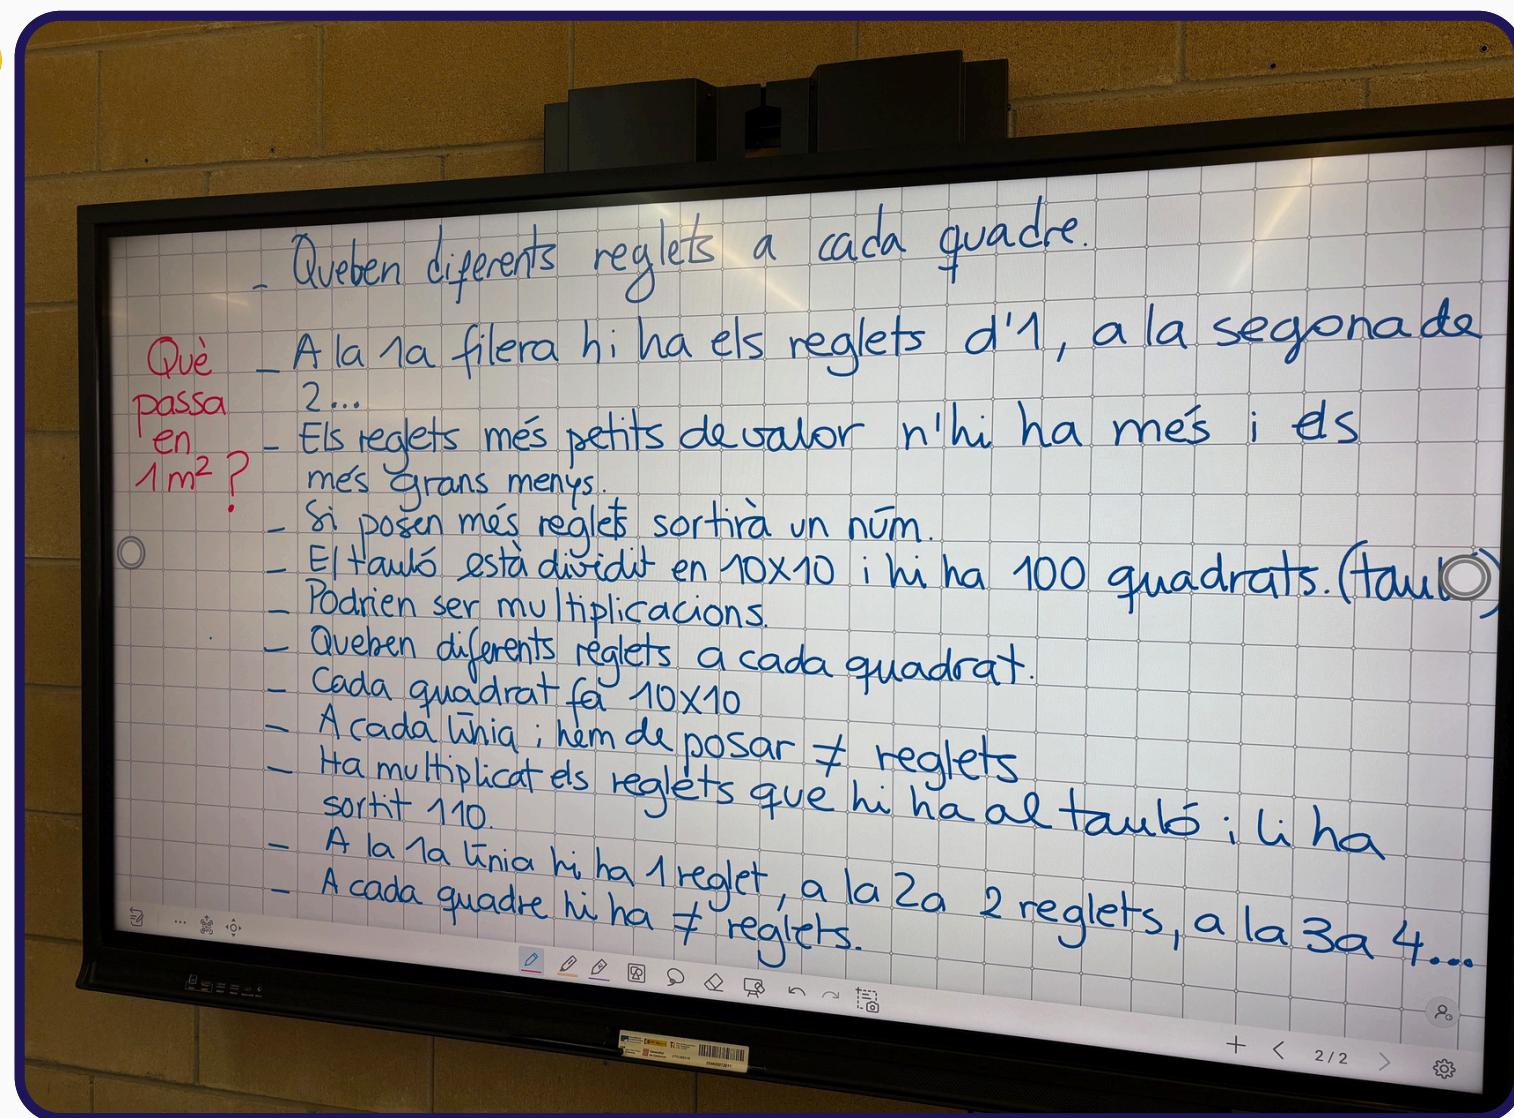 - Queben diferents reglets a cada quadre.
Què
passa
en
1m²?
- A la 1a filera hi ha els reglets d'1, a la segona de
2...
- Els reglets més petits de valor n'hi ha més i els
més grans menys.
- Si posen més reglets sortirà un núm.
- El tauló està dividit en 10x10 i hi ha 100 quadrats. (tauló)
- Podrien ser multiplicacions.
- Queben diferents reglets a cada quadrat.
- Cada quadrat fa 10x10
- A cada línia i hem de posar ≠ reglets
- Ha multiplicat els reglets que hi ha al tauló i li ha
sortit 110.
- A la 1a línia hi ha 1 reglet, a la 2a 2 reglets, a la 3a 4...
- A cada quadre hi ha ≠ reglets.
2/2